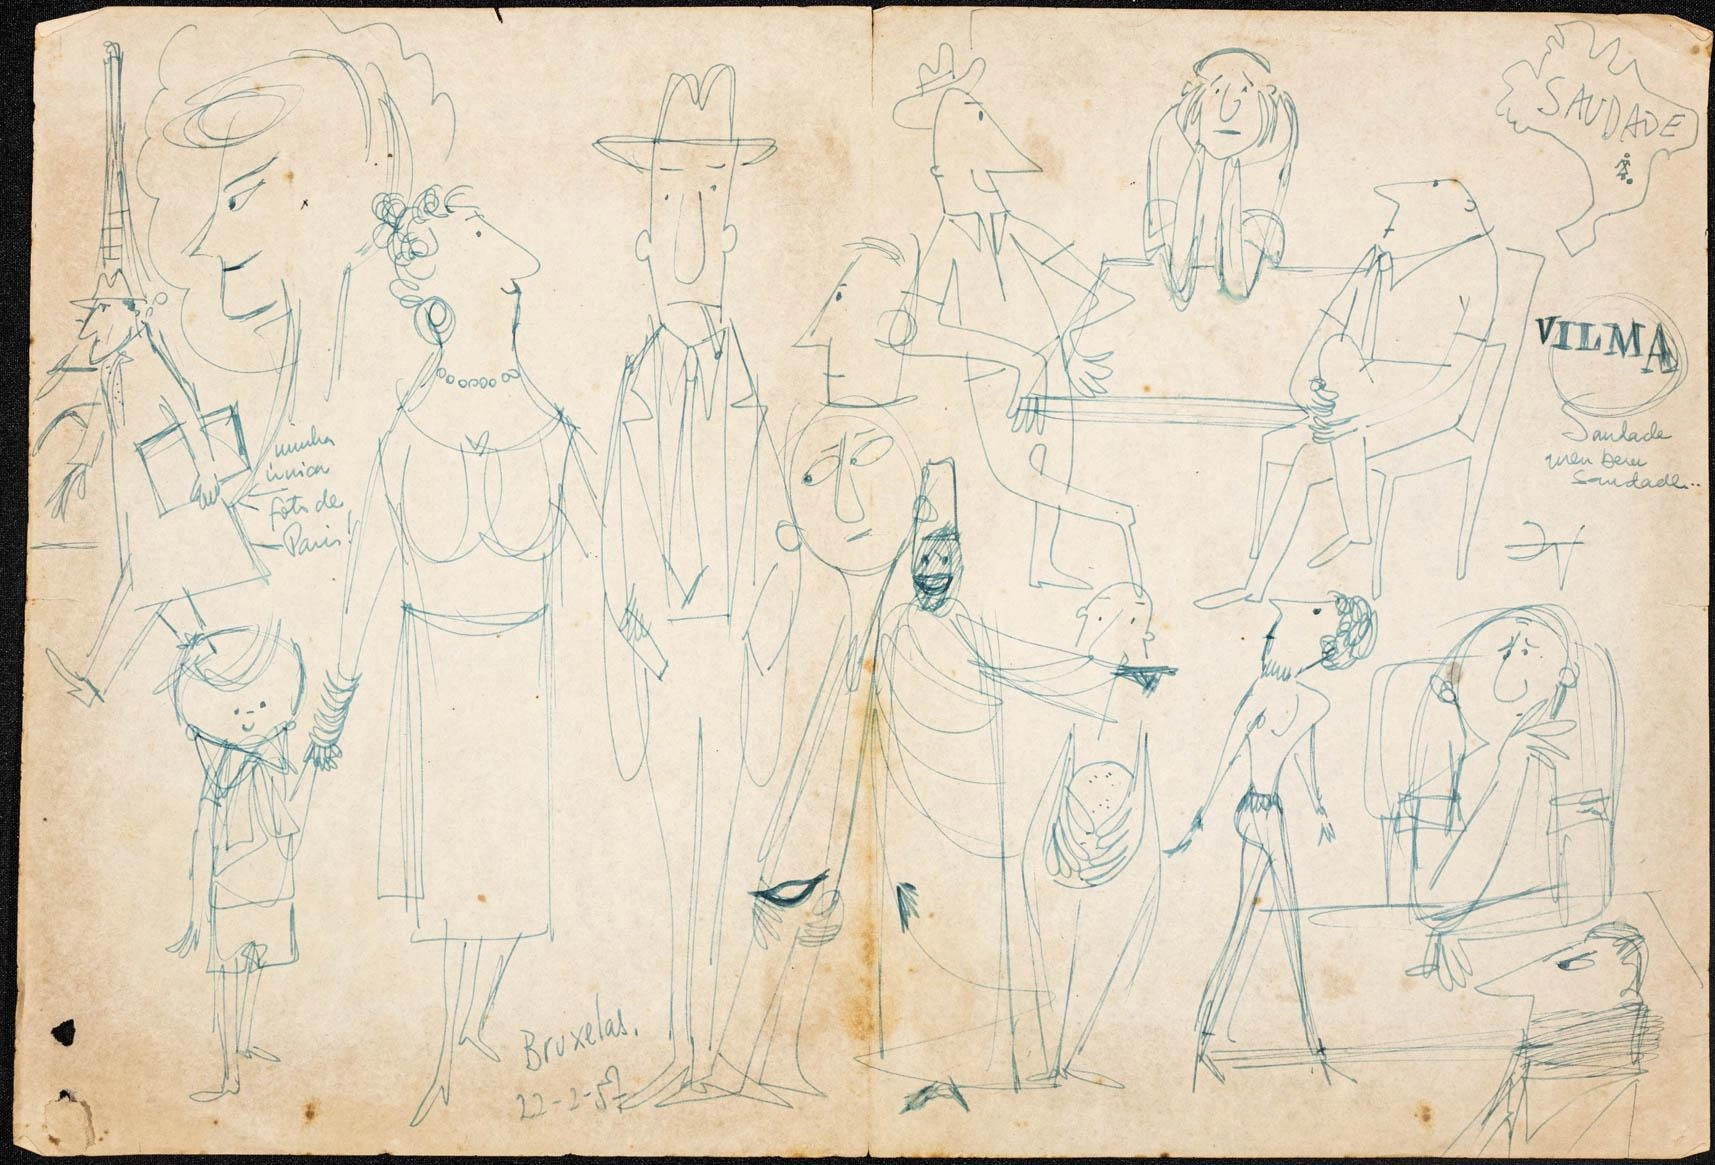 SAUDADE
VILMA
Saudade
quem bem
Saudade...
minha
única
foto de
Paris!
Bruxelas.
22-2-57